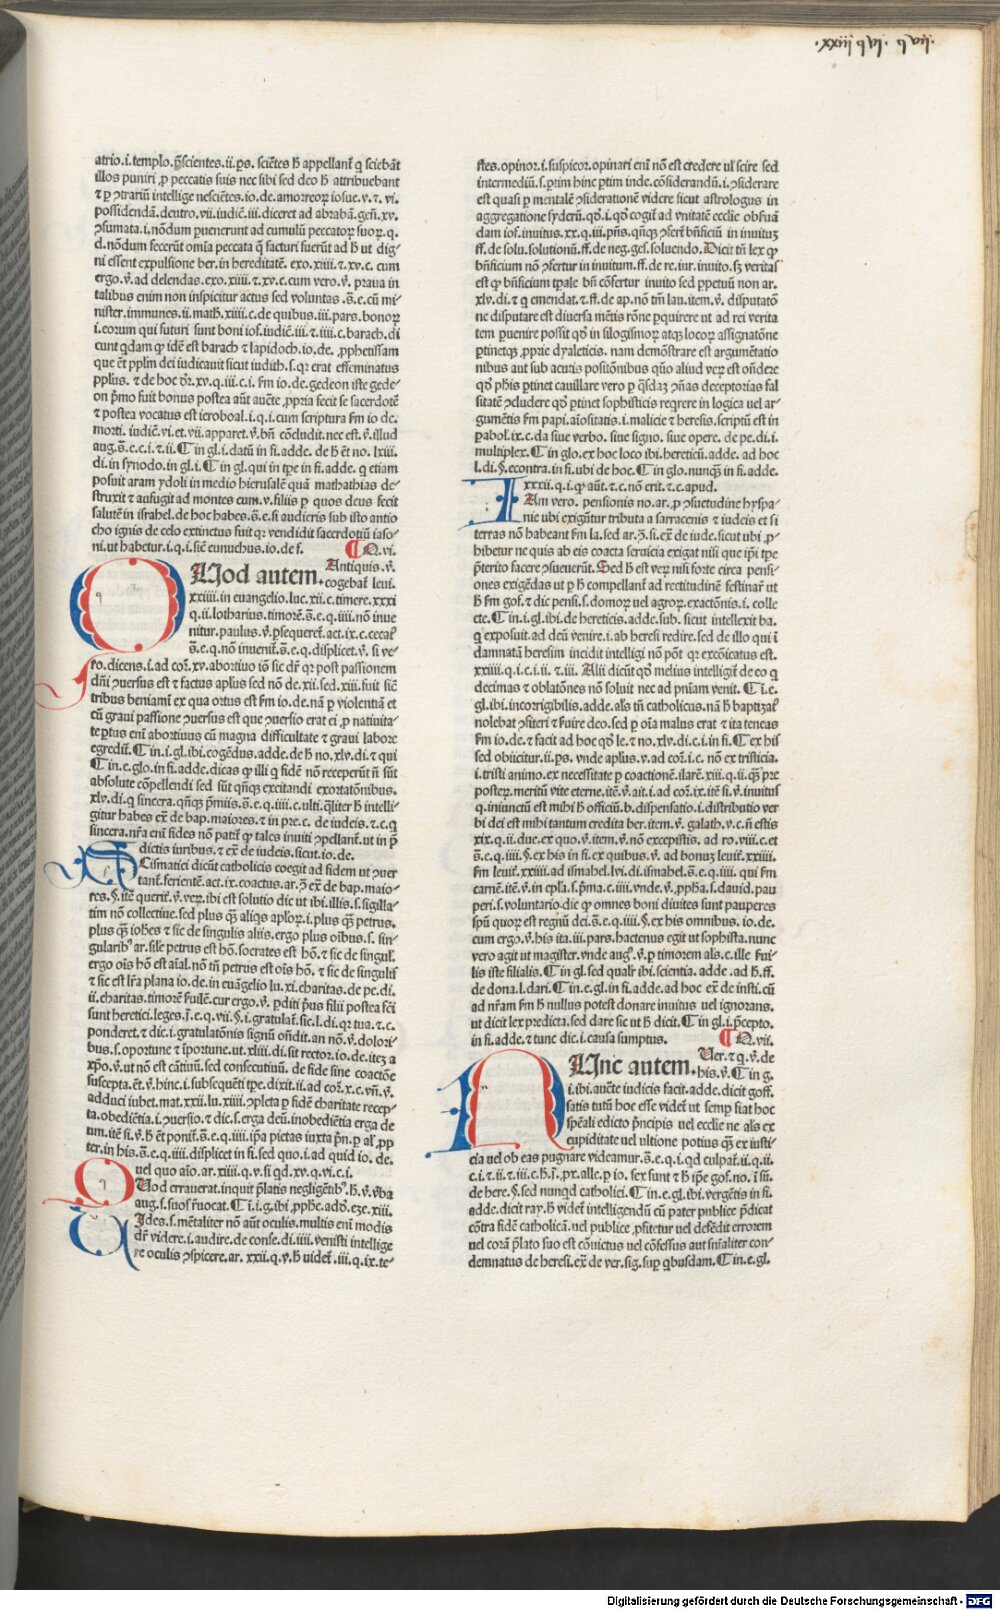 .xxiij q vj. q vij.
atrio.i.templo.p̄scientes.ii.ps. sciētes ħ appellant̄ q sciebāt
illos puniri ꝓ peccatis suis nec sibi sed deo ħ attribuebant
possidendā.deutro.vii.iudiē.iii.diceret ad abrahā.gen̄.xv.
ꝯsumata.i.nōdum puenerunt ad cumulū peccatoꝝ suoꝝ.q.
d.nōdum fecerūt omīa peccata q̄ facturi fuerūt ad ħ ut dig-
ni essent expulsione her.in hereditatē.exo.xiiii.⁊.xv.c. cum
ergo.v̄.ad delendas.exo.xiiii.⁊.xv.c.cum vero.v̄. praua in
talibus enim non inspicitur actus sed voluntas .s̄.e.cū mi-
nister.immunes.ii.math̄.xiiii.c.de quibus.iii.pars.bonoꝝ
i.eorum qui futuri sunt boni ios.iudiē.iii.⁊.iiii.c.barach.di
cunt qdam ꝙ idē est barach ⁊ lapidoch.io.de. ꝓphetissam
que ēt pplm̄ dei iudicauit sicut iudith.s.qꝛ erat effeminatus
pplus. ⁊ de hoc d̄r.xv.q.iii.c.i. s̄m io.de.gedeon iste gede-
on p̄mo fuit bonus postea aūt auēte ,ppria fecit se sacerdotē
⁊ postea vocatus est ieroboal.i.q.i.cum scriptura s̄m io de.
morti. iudiē.vi.et.vii.apparet.v̄.bn̄ cōcludit.nec est.v̄.illud
aug.s̄.e.c.i.⁊.ii.¶ in gl.i.datū in fi.adde. de ħ ēt no. lxiii.
di.in synodo.in gl.i.¶ in gl.qui in tp̄e in fi.adde. q etiam
posuit aram ydoli in medio hierusalē quā mathathias de-
struxit ⁊ aufugit ad montes cum.v.filiis p quos deus fecit
salutē in israhel.de hoc habes.s̄.e.si audieris sub isto antio
cho ignis de celo extinctus fuit qꝛ vendidit sacerdotiū iaso-
ni.ut habetur.i.q.i.siē eunuchus.io.de s. ¶ Q.vi.
QUod autem. Antiquis.v̄.
cogebat̄ leui.
xxiiii.in euangelio.luc.xii.c.timere.xxxi
q.ii.lotharius.timorē.s̄.e.q.iiii.nō inue
nitur.paulus.v̄.ꝑsequeret̄.act.ix.c.cecat̄
s̄.e.q.nō inuenit̄.s̄.e.q.displicet.v̄. si ve-
ro.dicens.i.ad cor̄.xv.abortiuo iō sic dr̄ qꝛ post passionem
dn̄i ꝯuersus est ⁊ factus aplus sed nō de.xii.sed.xiii.fuit siē
tribus beniami ex qua ortus est s̄m io.de.nā p violentiā et
cū graui passione ꝯuersus est que ꝯuersio erat ei ꝓ natiuita-
te ptus enī abortiuus cū magna difficultate ⁊ graui labore
egredit̄.¶ in.i.gl.ibi.cogēdus.adde.de ħ no.xlv.di.⁊ qui
¶ in.e.glo.in fi.adde.dicas ꝙ illi q fidē nō receperūt n̄ sūt
absolute cōpellendi sed sūt qn̄qꝫ excitandi exortatōnibus.
xlv.di.q sincera.qn̄qꝫ p̄miis.s̄.e.q.iiii.c.ulti.q̄liter ħ intelli-
gitur habes ex̄ de bap.maiores.⁊ in pre.c. de iudeis.⁊.c.q
sincera.nr̄a enī fides nō patit̄ ꝙ tales inuiti ꝯpellant̄.ut in p̄
dictis iuribus.⁊ ex̄ de iudeis.sicut.io.de.
SCismatici dicūt catholicis coegit ad fidem ut ꝯuer
tant̄.ferientē.act.ix.coactus.ar.ꝫ ex̄ de bap.maio-
res.§.itē querit̄.v̄.veꝝ.ibi est solutio dic ut ibi.illis.s.sigilla-
tim nō collectiue.sed plus q̄ꝫ aliqs aploꝝ.i.plus q̄ꝫ petrus.
plus q̄ꝫ iohēs ⁊ sic de singulis aliis.ergo plus oībus.s. sin-
gularibꝰ ar.sile petrus est hō.socrates est hō.⁊ sic de singul̄.
ergo oīs hō est aīal.nō tn̄ petrus est oīs hō. ⁊ sic de singulis
⁊ sic est lr̄a plana io.de.in euāgelio lu.xi.charitas.de pe.di.
ii.charitas.timorē ſuilē.cur ergo.v̄. ꝑditi p̄us filii postea fc̄i
sunt heretici.leges.j̄.e.q.vii.§.i.gratulat̄.sic.l.di.qꝛ tua.⁊.c.
ponderet.⁊ dic.i.gratulatōnis signū on̄dit.an nō.v̄.dolori-
bus.s.oportune ⁊ iportune.ut.xliii.di.sit rector.io.de.iteꝫ a
xp̄o.v̄.ut nō est cātiuū.sed consecutiuū. de fide sine coactōe
suscepta.ēt.v̄.hinc.i.subsequēti tp̄e.dixit.ii.ad cor̄.x.c.vn̄.v̄.
adduci iubet.mat.xxii.lu.xiiii.ꝯpleta p fidē charitate recep-
ta.obediētia.i.ꝯuersio.⁊ dic.s.erga deū.inobediētia erga de
um.itē si.v̄.ħ ēt ponit̄.s̄.e.q.iiii.ip̄a pietas iuxta p̄n̄.p al̄.ꝓp
ter.in his.s̄.e.q.iiii.displicet in fi.sed quo.i.ad quid io. de.
uel quo aīo.ar.xiiii.q.v.si qd.xv.q.vi.c.i.
QUod errauerat.inquit p̄latis negligētibꝰ.ħ.v̄.v̄ba
aug.s.suos r̄uocat.¶ i.i.g.ibi ,pphe.adō.eze.xiii.
UIdes.s.mētaliter nō aūt oculis.multis enī modis
dr̄ videre.i.audire.de conse.di.iiii.venisti intellige
re oculis ꝯspicere.ar. xxii.q.v.ħ uidet̄ .iii.q.ix.te-
stes.opinor.i.suspicor.opinari enī nō est credere ul̄ scire sed
intermediū.s.ptim hinc ptim inde.cōsiderandū.i.ꝯsiderare
est quasi p mentalē ꝯsiderationē videre sicut astrologus in
aggregatione syderū.qō.i.qō cogit̄ ad vnitatē ecclie obſuā
dam ios.inuitus.xx.q.iii.pn̄s.qn̄qꝫ ꝯfert̄ bn̄ficiū in inuituꝫ
ff.de solu.solutionū.ff.de neg.ges.soluendo.Dicit tn̄ lex ꝙ
bn̄ficium nō ꝯfertur in inuitum.ff.de re.iur.inuito.sꝫ veritas
est ꝙ bn̄ficium tp̄ale bn̄ cōfertur inuito sed ppetuū non ar.
xlv.di.⁊ q emendat.⁊ ff.de ap.nō tm̄ lau.item.v̄. disputatō
ne disputare est diuersa mētis rōne pquirere ut ad rei verita
tem puenire possit qō in silogismoꝝ atqꝫ locoꝝ assignatōne
ptinetqꝫ ,pprie dyaleticis. nam demōstrare est argumētatio
nibus aut sub acutis positiōnibus quo aliud veꝝ est on̄dere
qō phis ptinet cauillare vero p qsdaꝫ ꝯn̄as deceptorias fal
sitatē ꝯcludere qō ptinet sophisticis reqrere in logica uel ar-
gumētis s̄m papi.aiositatis.i.malicie ⁊ heresis.scriptū est in
pabol.ix.c.da siue verbo. siue signo. siue opere. de pe.di.i.
multiplex.¶ in glo.ex hoc loco ibi.hereticū.adde. ad hoc
l.di.§.econtra.in fi.ubi de hoc.¶ in glo.nunqꝫ in fi.adde.
xxxii.q.i.ꝙ aūt.⁊.c.nō erit.⁊.c.apud.
IAm vero. pensionis no.ar.ꝓ ꝯsuetudine hyspa-
nie ubi exigūtur tributa a sarracenis ⁊ iudeis et si
terras nō habeant s̄m la.sed ar.ꝫ.si.ex̄ de iude.sicut ubi ,p-
hibetur ne quis ab eis coacta seruicia exigat nisi que ip̄i tp̄e
p̄terito facere ꝯsueuerūt. Sed ħ est veꝝ nisi forte circa pensi-
ones exigēdas ut p ħ compellant̄ ad rectitudinē festinar̄ ut
ħ s̄m gof.⁊ dic pensi.s.domoꝝ uel agroꝝ.exactōnis.i. colle
cte.¶ in.i.gl.ibi de hereticis.adde.sub. sicut intellexit ba.
q exposuit.ad deū venire.i.ab heresi redire.sed de illo qui ī
damnatā heresim incidit intelligi nō pōt qꝛ excōicatus est.
xxiiii.q.i.c.i.ii.⁊.iii. Alii dicūt qō melius intelligit̄ de eo q
decimas ⁊ oblatōnes nō soluit nec ad pn̄iam venit. ¶ i.e.
gl.ibi.incorrigibilis.adde.als tn̄ catholicus.nā ħ baptizat̄
nolebat ꝯfiteri ⁊ ſuire deo.sed p oīa malus erat ⁊ ita teneas
s̄m io.de.⁊ facit ad hoc qō le.⁊ no.xlv.di.c.i.in fi.¶ ex his
sed obiicitur.ii.ps. vnde aplus.v. ad cor̄.i.c. nō ex tristicia.
i.tristi animo.ex necessitate p coactionē.ilarē.xiii.q.ii.q̄ꝫ pre
posteꝝ.meritū vite eterne.itē.v̄.ait.i.ad cor̄.ix.itē si.v̄.inuitus
q.iniunctū est mihi ħ officiū.b.dispensatio.i.distributio ver
bi dei est mihi tantum credita ber.item.v̄. galath.v.c.n̄ estis
xix.q.ii.due.ex quo.v̄.item.v̄.nō excepistis. ad ro.viii.c.et
s̄.e.q.iiii.§.ex his in fi.ex quibus.v̄. ad bonuꝫ leuit̄.xxiiii.
s̄m leuit̄.xxiiii.ad ismahel.lvi.di.ismahel.s̄.e.q.iiii. qui s̄m
carnē.itē.v̄.in epl̄a.s.p̄ma.c.iiii.vnde.v̄. ,pphā.s.dauid.pau
peri.s.voluntario.dic ꝙ omnes boni diuites sunt pauperes
spū quoꝝ est regnū dei.s̄.e.q.iiii.§.ex his omnibus. io.de.
cum ergo.v̄.his ita.iii.pars.hactenus egit ut sophista.nunc
vero agit ut magister.vnde augꝰ.v̄.p timorem als.c.ille ſui-
lis iste filialis.¶ in gl.sed qualr̄ ibi.scientia. adde .ad ħ.ff.
de dona.l.dari.¶ in.e.gl.in fi.adde.ad hoc ex̄ de insti.cū
ad nr̄am s̄m ħ nullus potest donare inuitus uel ignorans.
ut dicit lex predicta.sed dare sic ut ħ dicit.¶ in gl.i.p̄cepto.
in fi.adde.⁊ tunc dic.i.causa sumptus. ¶ Q.vii.
NUnc autem. Uer.⁊ q.v̄.de
his.v̄.¶ in g.
i.ibi.auēte iudicis facit.adde.dicit goff.
satis tutū hoc esse videt̄ ut semp fiat hoc
sp̄eali edicto p̄ncipis uel ecclie ne als ex
cupiditate uel ultione potius q̄ꝫ ex iusti-
cia uel ob eas pugnare videamur.s̄.e.q.i.qd culpat̄.ii.q.ii.
c.i.⁊.ii.⁊.iii.c.ħ.ī. px.alle.p io. sex sunt ⁊ ħ ip̄e gof.no.ī sū.
de here.§.sed nunqd catholici.¶ in.e.gl.ibi.vergētis in fi.
adde.dicit ray.ħ videt̄ intelligendū cū pater publice p̄dicat
cōtra fidē catholicā.uel publice ,pfitetur uel defēdit errorem
uel corā p̄lato suo est cōuictus uel cōfessus aut sn̄ialiter con-
demnatus de heresi.ex̄ de ver.sig.suꝑ qbusdam.¶ in.e.gl.
Digitalisierung gefördert durch die Deutsche Forschungsgemeinschaft - DFG